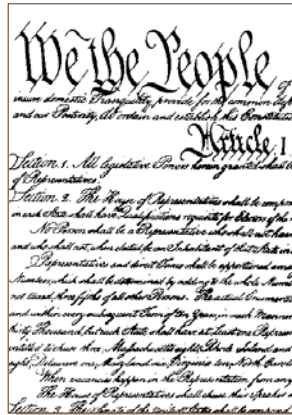 We the People of
insure domestic Tranquility, provide for the common def
and our Posterity, do ordain and establish this Constitut
Article. I
Section. 1. All legislative Powers herein granted shall b
of Representatives.
Section. 2. The House of Representatives shall be compos
in each State shall have Qualifications requisite for Electors of the
No Person shall be a Representative who shall not have
and who shall not, when elected, be an Inhabitant of that State in
Representatives and direct Taxes shall be apportioned amo
Numbers, which shall be determined by adding to the whole Numb
not taxed, three fifths of all other Persons. The actual Enumerat
and within every subsequent Term of ten Years, in such Manner
thirty Thousand, but each State shall have at Least one Represen
entitled to chuse three, Massachusetts eight, Rhode Island and
eight, Delaware one, Maryland six, Virginia ten, North Caroli
When vacancies happen in the Representation from any
The House of Representatives shall chuse their Speaker a
Section. 3. The Senate of the United States shall be compos